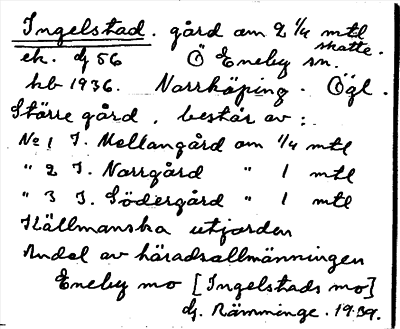 Ingelstad. gård om 2 1/4 mtl
skatte.
ek. dj 56 Ö Eneby sn.
hb 1936. Norrköping. Ögl.
Större gård, består av:
No 1 I. Mellangård om 1/4 mtl
" 2 I. Norrgård " 1 mtl
" 3 I. Södergård " 1 mtl
Källmanska utjorden
Andel av häradsallmänningen
Eneby mo [Ingelstads mo]
dj. Rämminge. 1939.